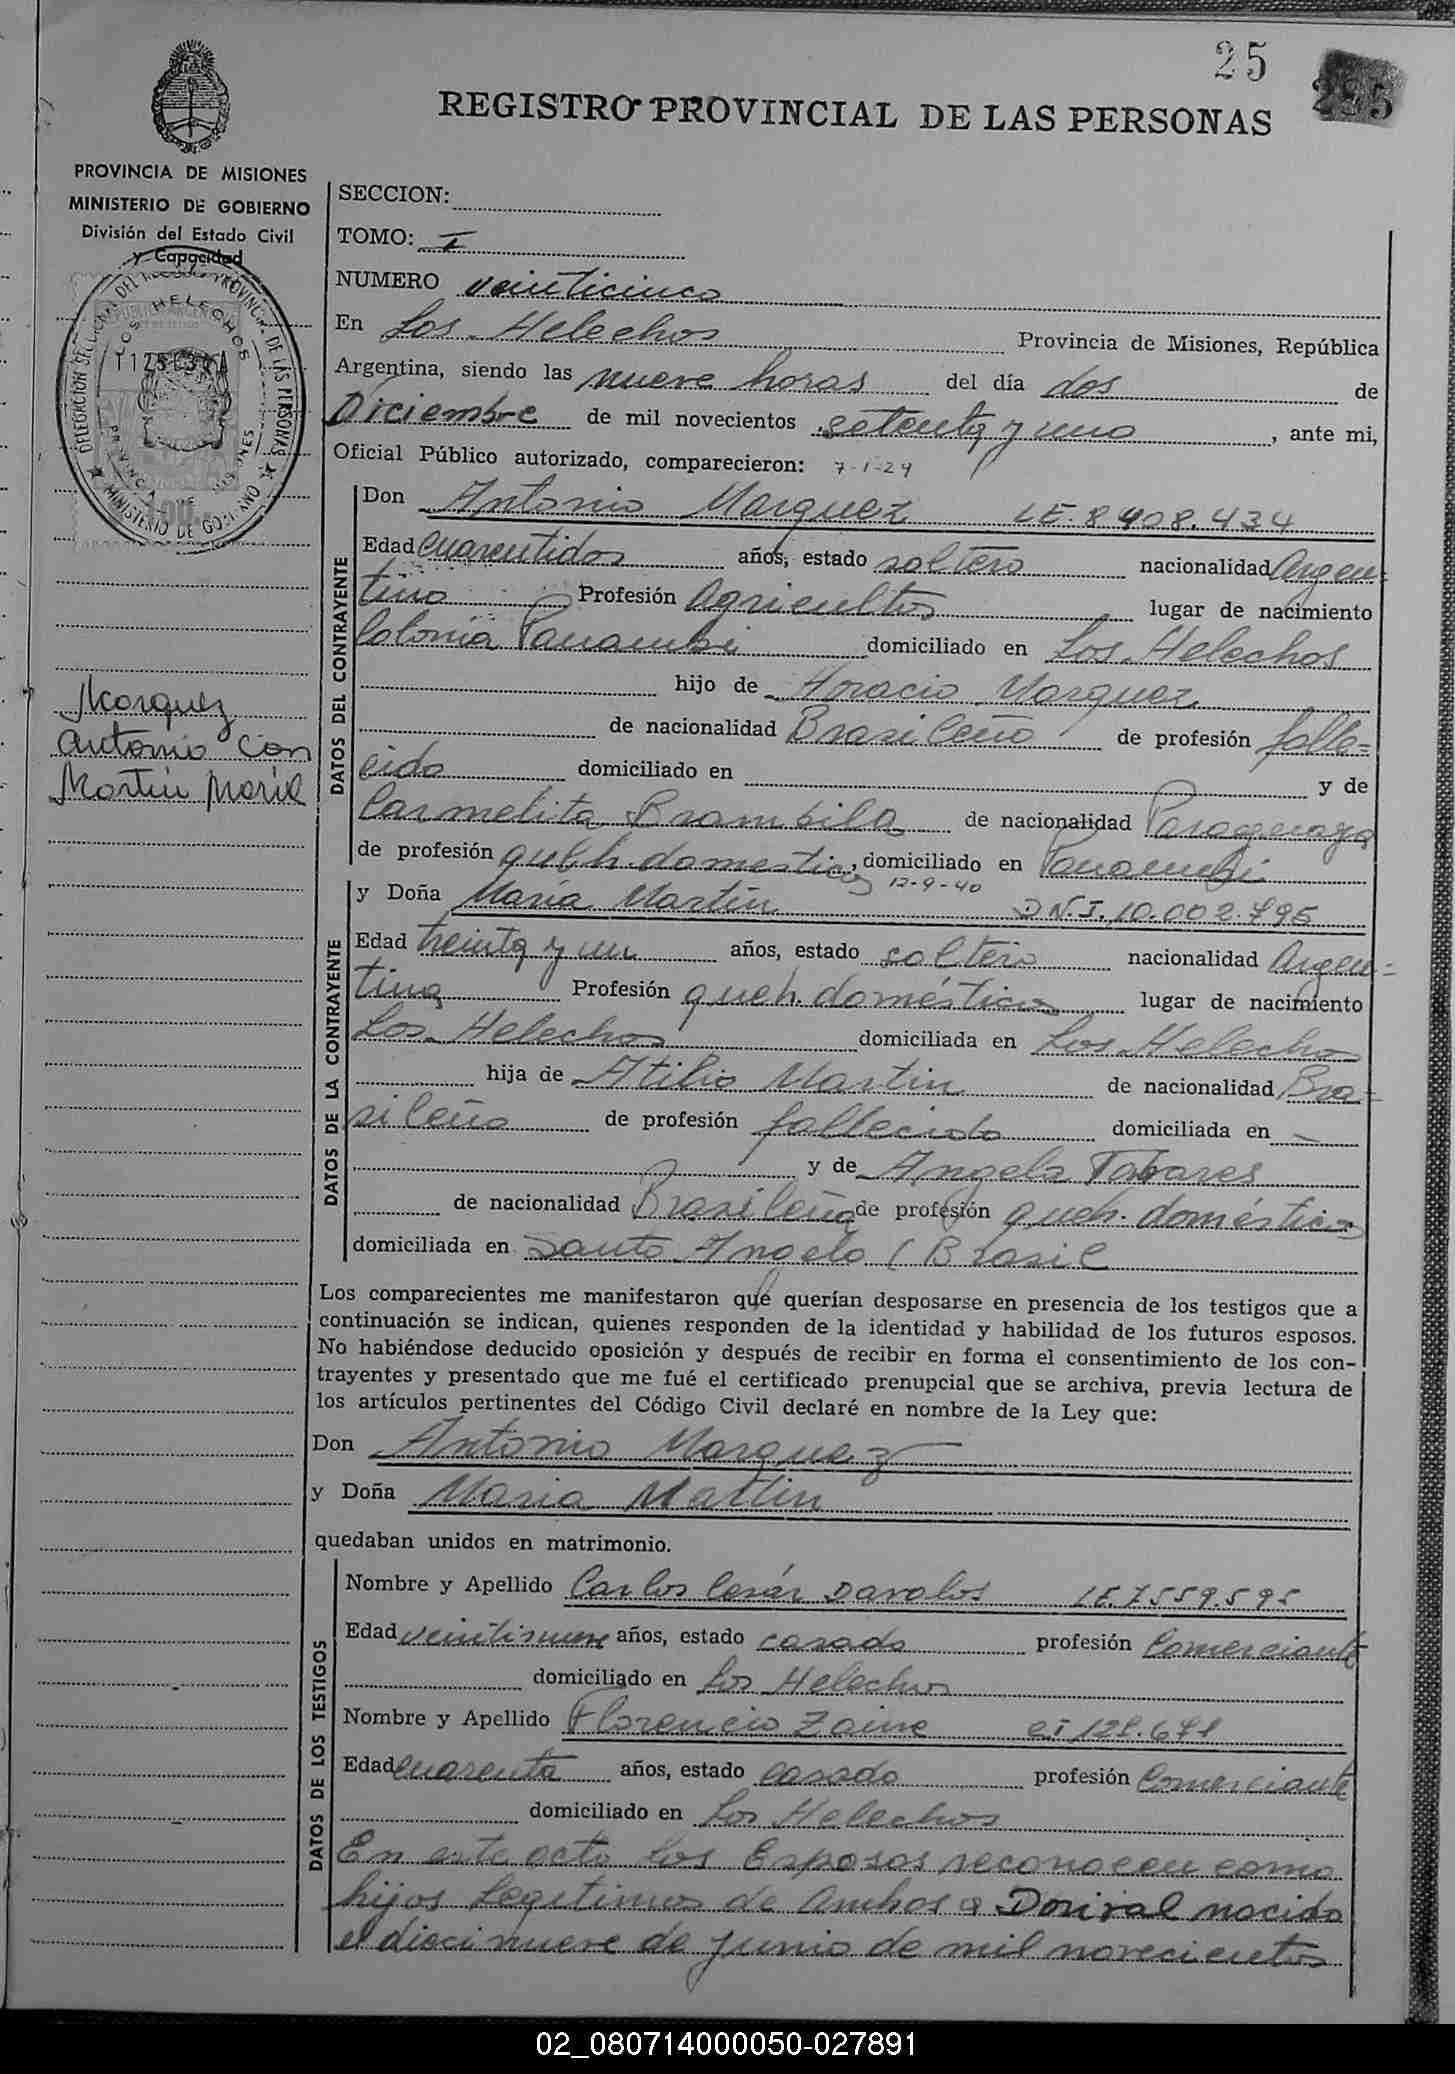 25
295
REGISTRO PROVINCIAL DE LAS PERSONAS
PROVINCIA DE MISIONES
MINISTERIO DE GOBIERNO
División del Estado Civil
y Capacidad
DELEGACION SECCIONAL DEL REGISTRO PROVINCIAL DE LAS PERSONAS
LOS HELECHOS
MINISTERIO DE GOBIERNO
Marquez
Antonio con
Martin Maria
SECCION:
TOMO: I
NUMERO veinticinco
En Los Helechos Provincia de Misiones, República
Argentina, siendo las nueve horas del día dos de
Diciembre de mil novecientos setenta y uno, ante mi,
Oficial Público autorizado, comparecieron: 7-1-29
DATOS DEL CONTRAYENTE
Don Antonio Marquez LE. 8.408.434
Edad cuarentidos años, estado soltero nacionalidad Argen-
tino Profesión Agricultor lugar de nacimiento
Colonia Panambi domiciliado en Los Helechos
hijo de Horacio Marquez
de nacionalidad Brasileño de profesión falle-
cido domiciliado en y de
Carmelita Brambila de nacionalidad Paraguaya
de profesión queh. domesticos, domiciliado en Panambi
12-9-40
DATOS DE LA CONTRAYENTE
y Doña Maria Martin D.N.I. 10.002.795
Edad treinta y un años, estado soltera nacionalidad Argen-
tina Profesión queh. domésticos lugar de nacimiento
Los Helechos domiciliada en Los Helechos
hija de Atilio Martin de nacionalidad Bra-
sileño de profesión fallecido domiciliada en -
y de Angela Tabares
de nacionalidad Brasileña de profesión queh. domésticos
domiciliada en Santo Angelo (Brasil
Los comparecientes me manifestaron que querían desposarse en presencia de los testigos que a
continuación se indican, quienes responden de la identidad y habilidad de los futuros esposos.
No habiéndose deducido oposición y después de recibir en forma el consentimiento de los con-
trayentes y presentado que me fué el certificado prenupcial que se archiva, previa lectura de
los artículos pertinentes del Código Civil declaré en nombre de la Ley que:
Don Antonio Marquez
y Doña Maria Martin
quedaban unidos en matrimonio.
DATOS DE LOS TESTIGOS
Nombre y Apellido Carlos Cesár Davalos LE. 7.559.595
Edad veintinueve años, estado casado profesión Comerciante
domiciliado en Los Helechos
Nombre y Apellido Florencio Zaine
Edad cuarenta años, estado casado profesión Comerciante
domiciliado en Los Helechos
En este acto los Esposos reconocen como
hijos Legitimos de Ambos a Dorival nacido
el diecinueve de junio de mil novecientos
02_080714000050-027891